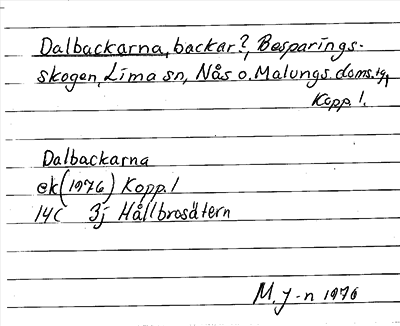 Dalbackarna, backar?, Besparings-
skogen, Lima sn, Nås o. Malungs doms.lg,
Kopp.l.
Dalbackarna
ek (1976) Kopp.l
14C 3j Hållbrosätern
M. J-n 1976